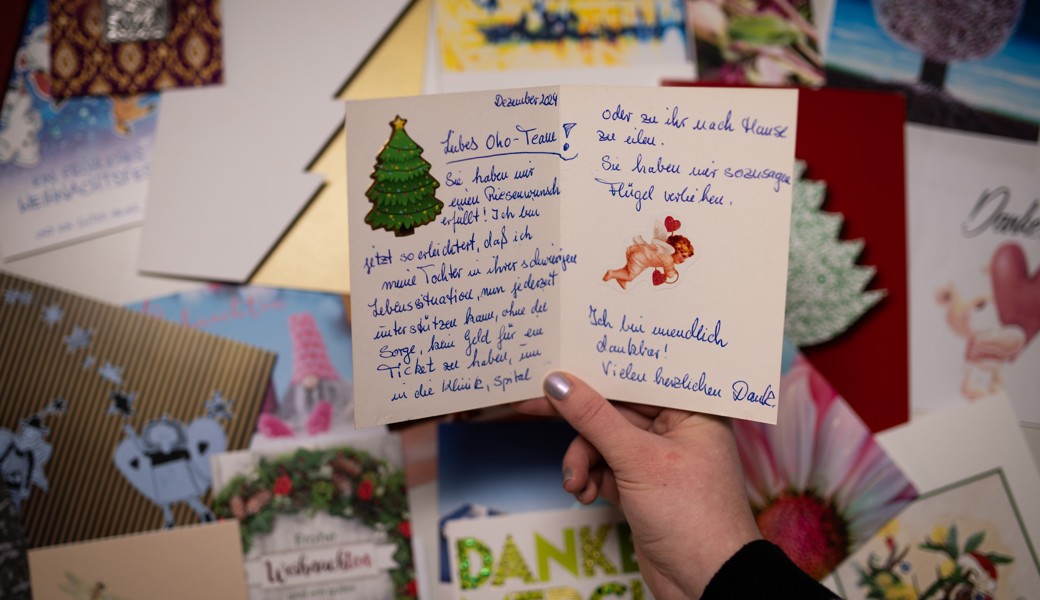 Dezember 2024
Liebes Öko-Team!
Sie haben mir
einen Riesenwunsch
erfüllt! Ich bin
jetzt so erleichtert, daß ich
meine Tochter in ihrer schwierigen
Lebenssituation, nun jederzeit
unterstützen kann, ohne die
Sorge, kein Geld für ein
Ticket zu haben, um
in die Klinik, Spital
oder zu ihr nach Hause
zu eilen.
Sie haben mir sozusagen
Flügel verliehen.
Ich bin unendlich
dankbar!
Vielen herzlichen Dank.
WEIHNACHTSFEST
Danke
Frohe
Weihnachten
DANKE